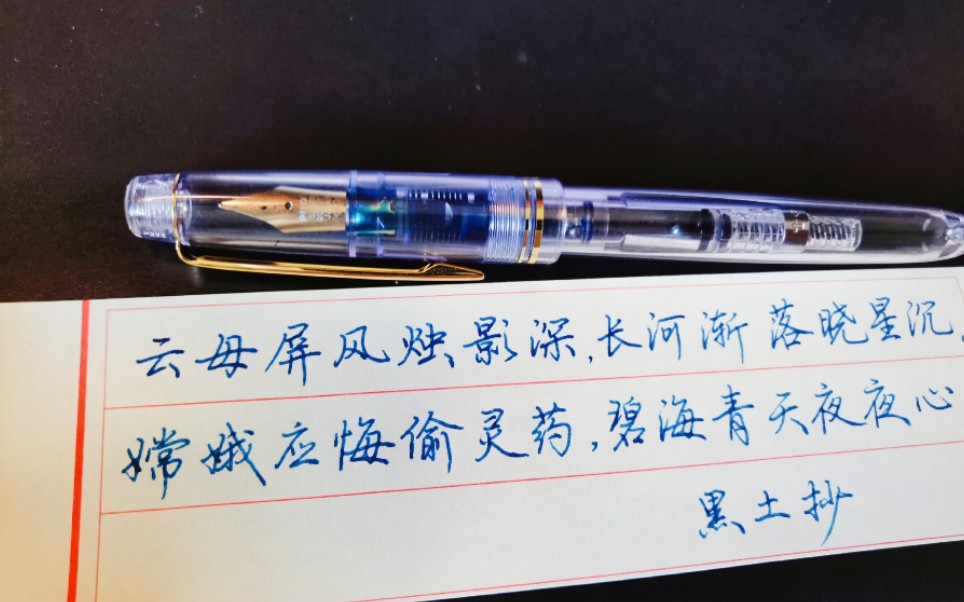 云母屏风烛影深,长河渐落晓星沉,
嫦娥应悔偷灵药,碧海青天夜夜心
黑土抄